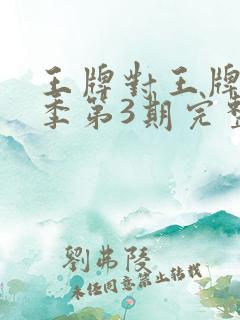 王牌對王牌
季第3期完整
劉弗陵
未經同意禁止轉載